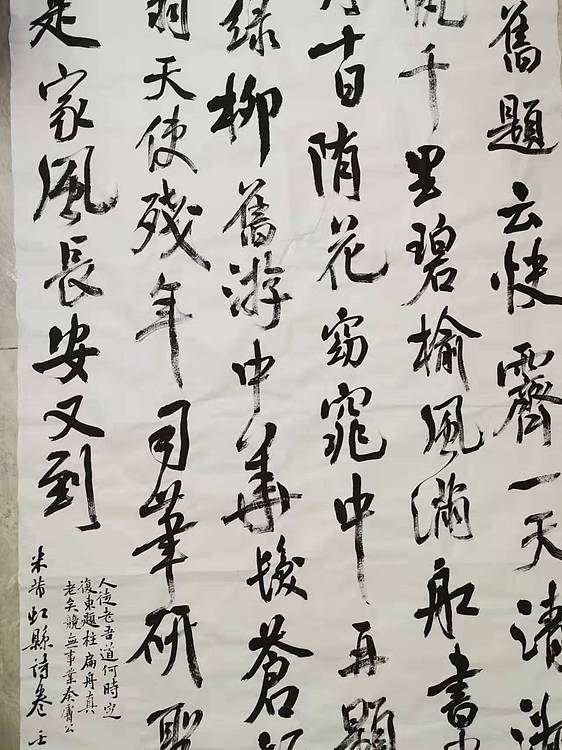 舊題云快霽一天清淑
帆千里碧榆風滿船書
月十日隨花窈窕中再題
綠柳舊游中華髮蒼
翁天使殘年司筆研聖
是家風長安又到
人徒老吾道何時定
復東題柱扁舟真
老矣竟無事業奏膚公
米芾虹縣詩卷壬